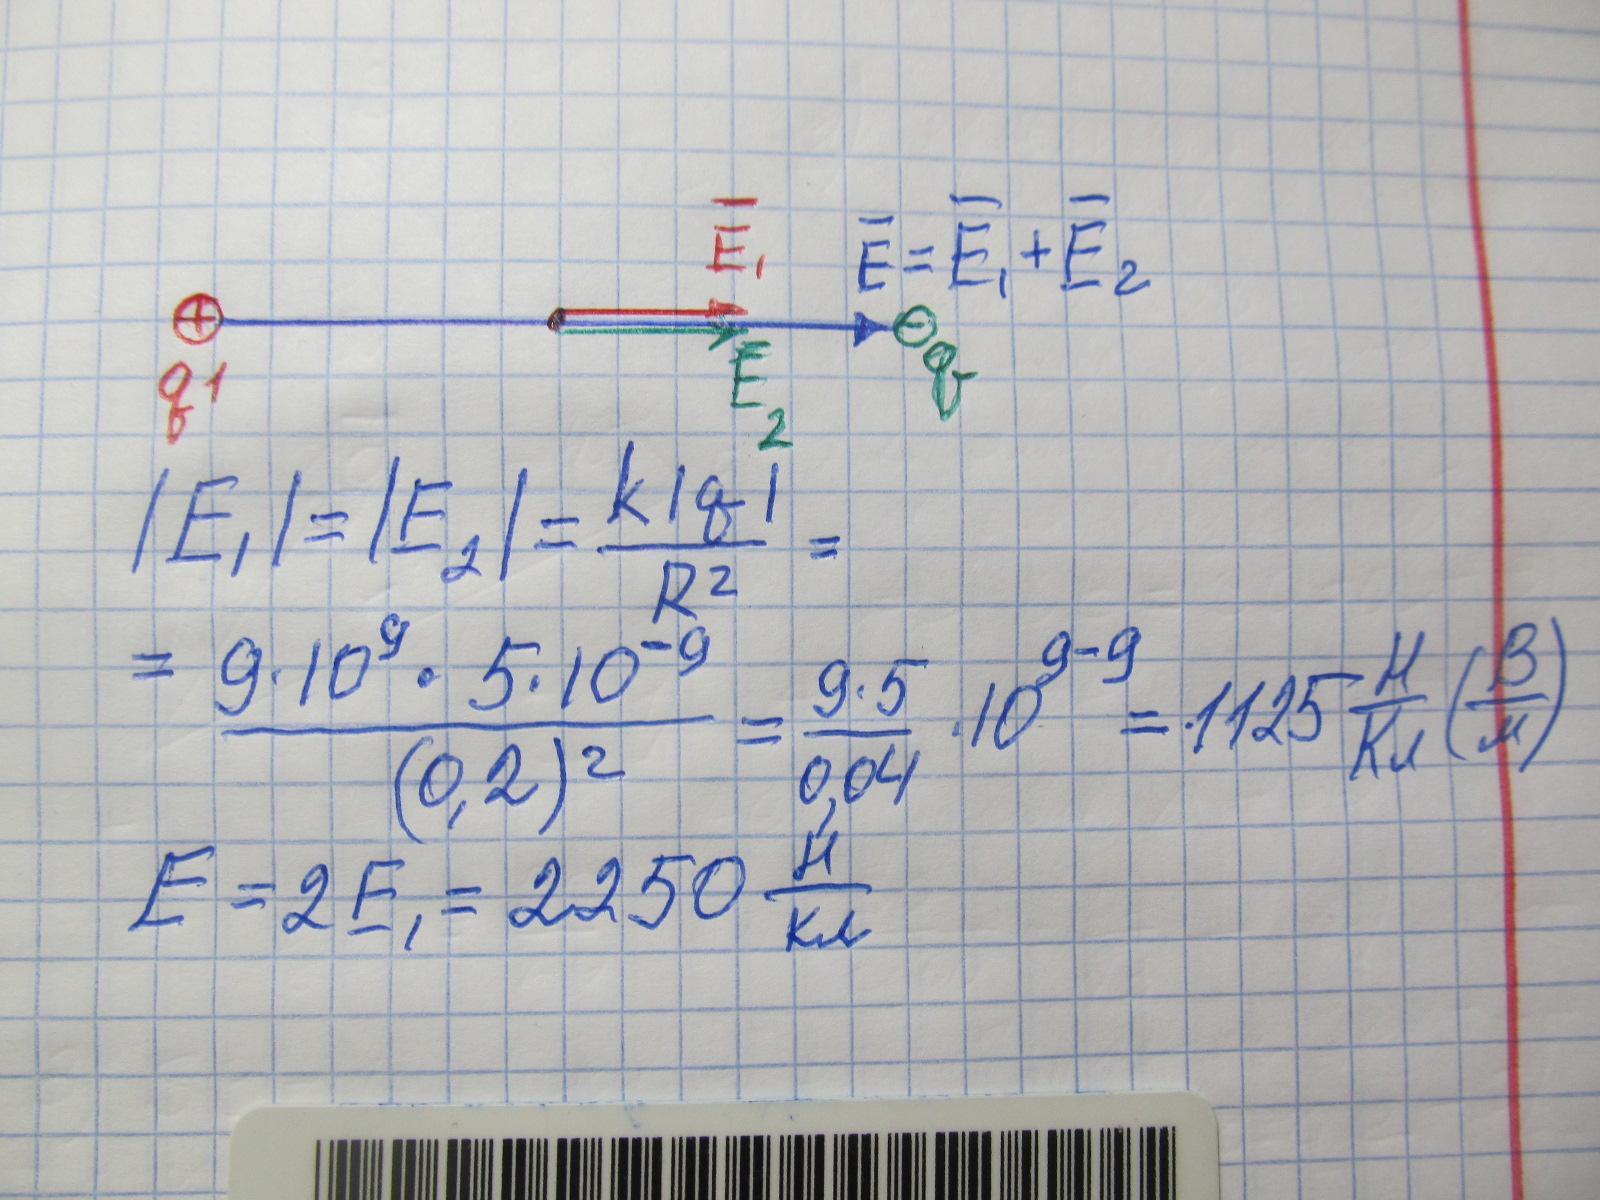 E̅₁ E̅ = E̅₁ + E̅₂
+ −
q1 E̅₂ q
|E₁| = |E₂| = k|q| / R² =
= 9·10⁹ · 5·10⁻⁹ / (0,2)² = 9·5 / 0,04 · 10⁹⁻⁹ = 1125 Н/Кл (В/м)
E = 2E₁ = 2250 Н/Кл